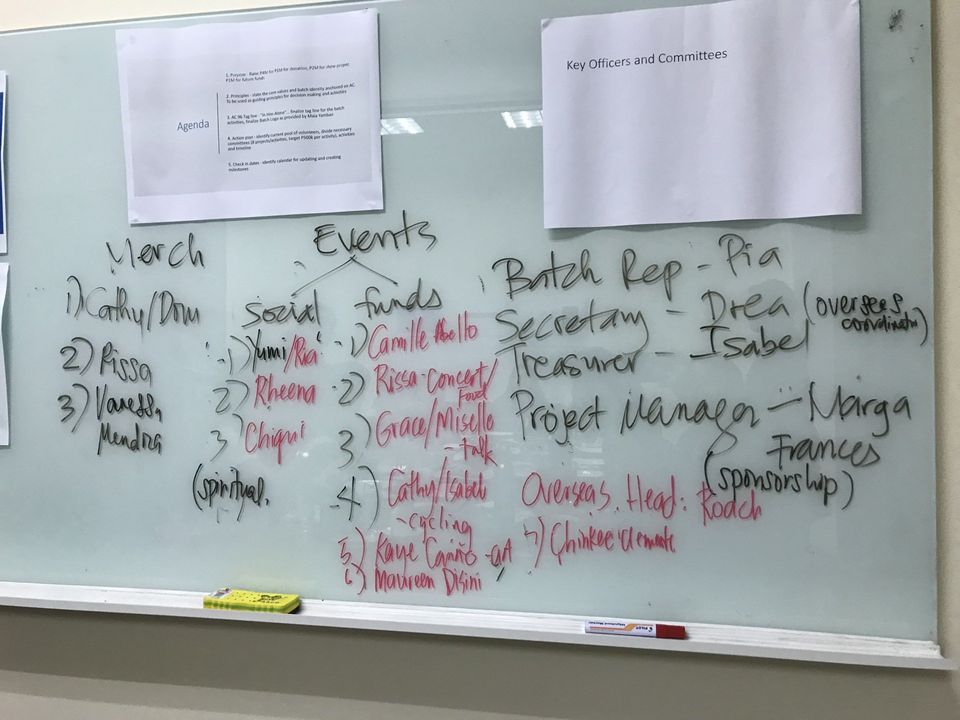 Agenda
1. Purpose - Raise P4M for P1M for donation, P2M for show project
P1M for future funds
2. Principles - state the core values and batch identity anchored on AC.
To be used as guiding principles for decision making and activities
3. AC 96 Tag line - finalize tag line for the batch
activities, finalize Batch Logo as provided by Maia Yambao
4. Action plan - identify current pool of volunteers, divide necessary
committees (8 projects/activities, target P500k per activity), activities
and timeline
5. Check in dates - identify calendar for updating and creating
milestones
Key Officers and Committees
Merch
1) Cathy/Dom
2) Rissa
3) Vanessa
Mendoza
Events
Social
1) Yumi/Ria
2) Rheena
3 Chiqui
(spiritual,
funds
1) Camille Abello
2) Rissa-Concert/
Food
3) Grace/Misello
- talk
4) Cathy/Isabel
- cycling
5) Kaye Cariño - art
6) Maureen Disini
7) Chinkee Clemente
Batch Rep - Pia
Secretary - Drea (overseas
coordinator)
Treasurer - Isabel
Project Manager - Marga
Frances
(sponsorship)
Overseas Head: Roach
PILOT